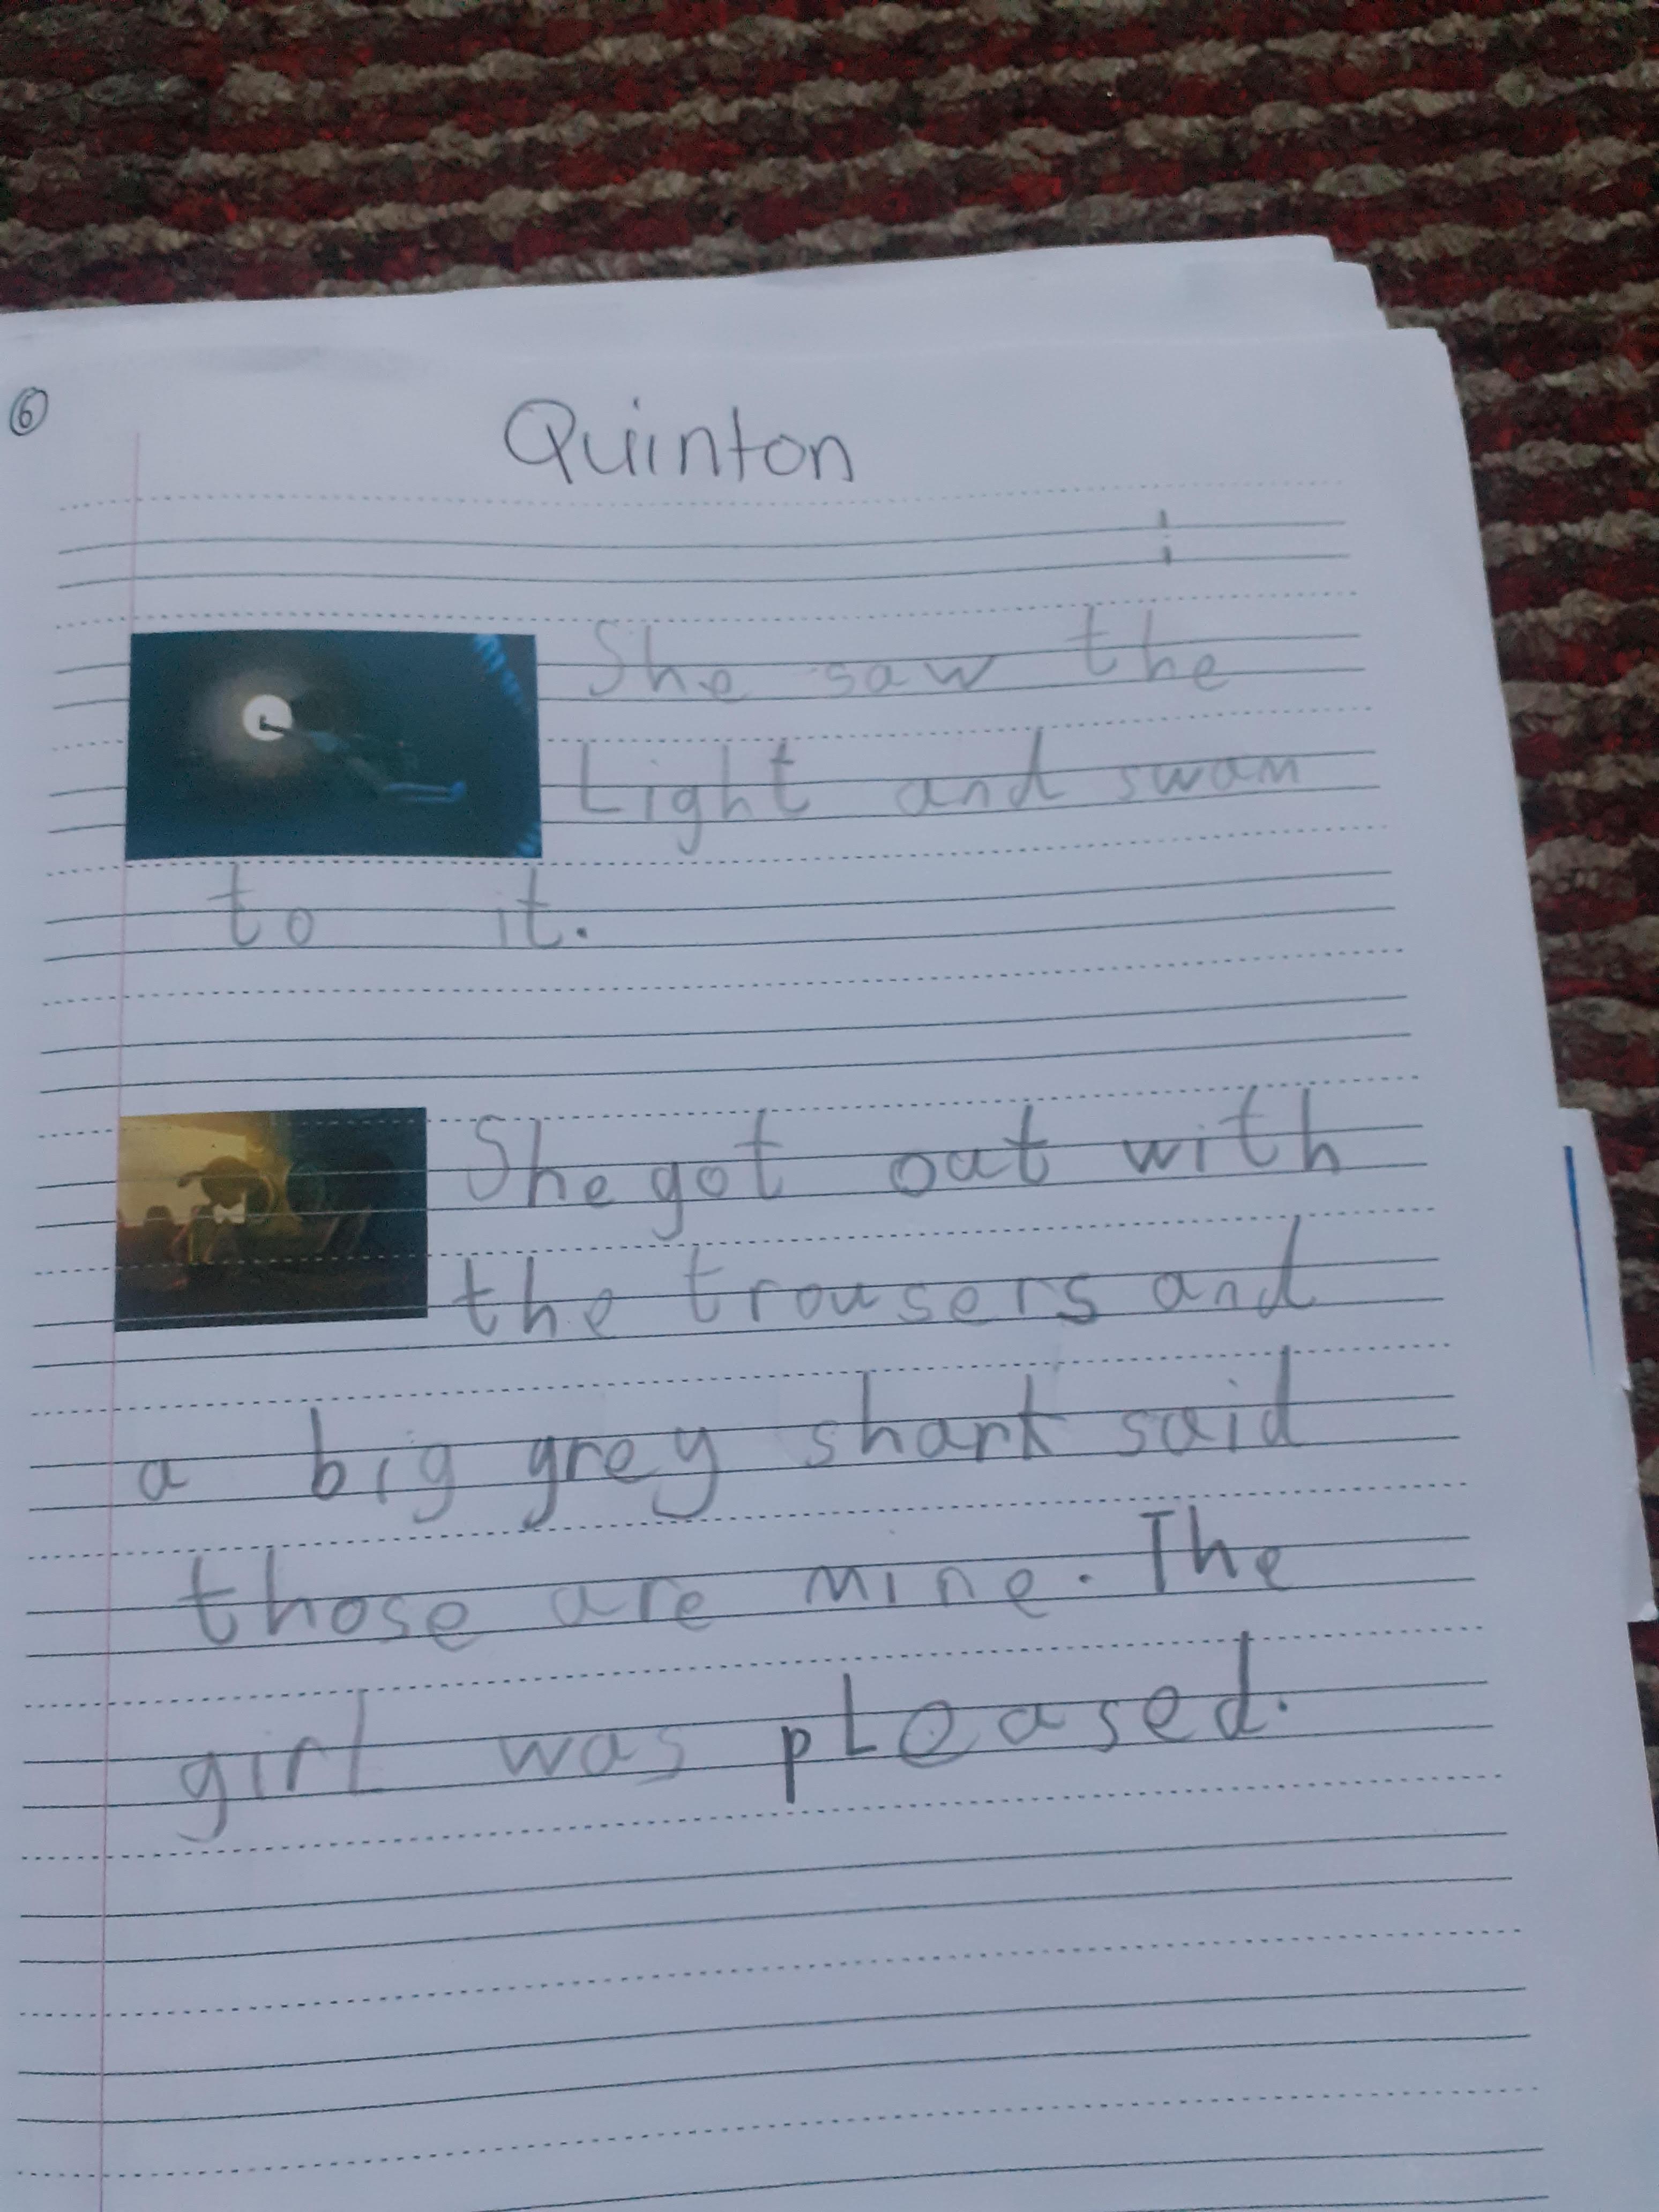 6
Quinton
She saw the
Light and swam
to it.
She got out with
the trousers and
a big grey shark said
those are mine. The
girl was pLeased.